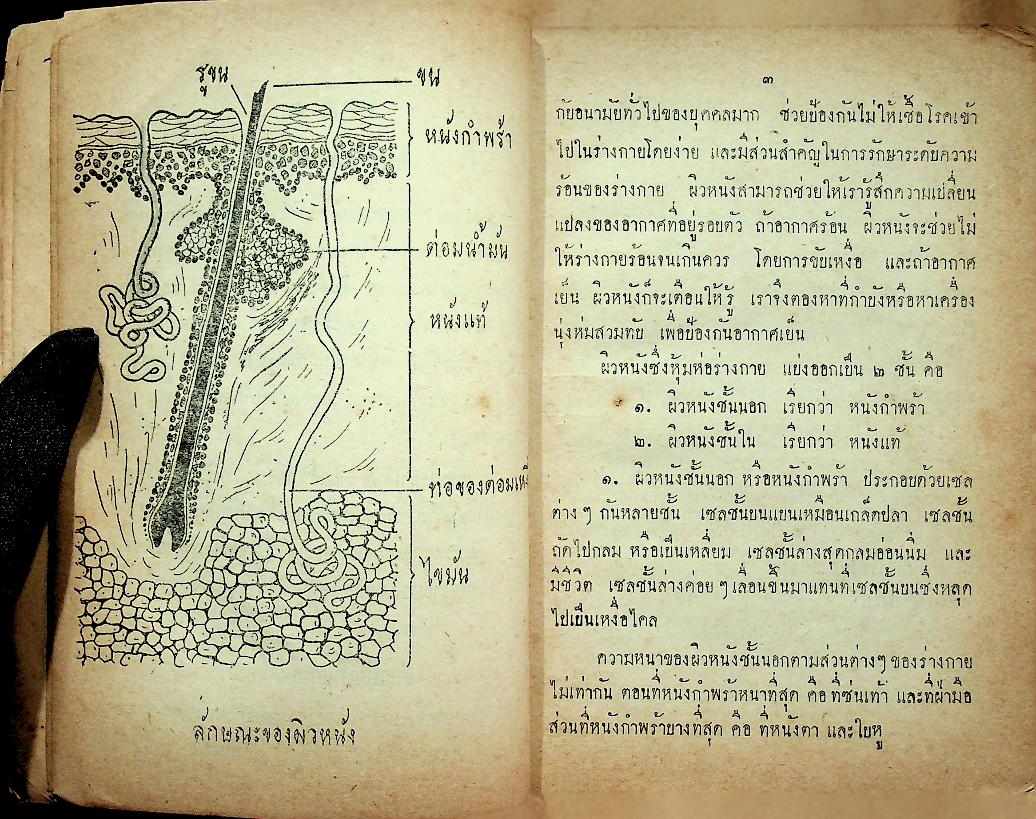 รูขน
ขน
หนังกำพร้า
ต่อมน้ำมัน
หนังแท้
ท่อของต่อมเหงื่
ไขมัน
ลักษณะของผิวหนัง
๓
กับอนามัยทั่วไปของบุคคลมาก ช่วยป้องกันไม่ให้เชื้อโรคเข้า
ไปในร่างกายโดยง่าย และมีส่วนสำคัญในการรักษาระดับความ
ร้อนของร่างกาย ผิวหนังสามารถช่วยให้เรารู้สึกความเปลี่ยน
แปลงของอากาศที่อยู่รอบตัว ถ้าอากาศร้อน ผิวหนังจะช่วยไม่
ให้ร่างกายร้อนจนเกินควร โดยการขับเหงื่อ และถ้าอากาศ
เย็น ผิวหนังก็จะเตือนให้รู้ เราจึงต้องหาที่กำบังหรือหาเครื่อง
นุ่งห่มสวมทับ เพื่อป้องกันอากาศเย็น
ผิวหนังซึ่งหุ้มห่อร่างกาย แบ่งออกเป็น ๒ ชั้น คือ
๑. ผิวหนังชั้นนอก เรียกว่า หนังกำพร้า
๒. ผิวหนังชั้นใน เรียกว่า หนังแท้
๑. ผิวหนังชั้นนอก หรือหนังกำพร้า ประกอบด้วยเซล
ต่าง ๆ กันหลายชั้น เซลชั้นบนแบนเหมือนเกล็ดปลา เซลชั้น
ถัดไปกลม หรือเป็นเหลี่ยม เซลชั้นล่างสุดกลมอ่อนนิ่ม และ
มีชีวิต เซลชั้นล่างค่อย ๆ เลื่อนขึ้นมาแทนที่เซลชั้นบนซึ่งหลุด
ไปเป็นเหงื่อไคล
ความหนาของผิวหนังชั้นนอกตามส่วนต่างๆ ของร่างกาย
ไม่เท่ากัน ตอนที่หนังกำพร้าหนาที่สุด คือ ที่ซ่นเท้า และที่ฝ่ามือ
ส่วนที่หนังกำพร้าบางที่สุด คือ ที่หนังตา และใบหู